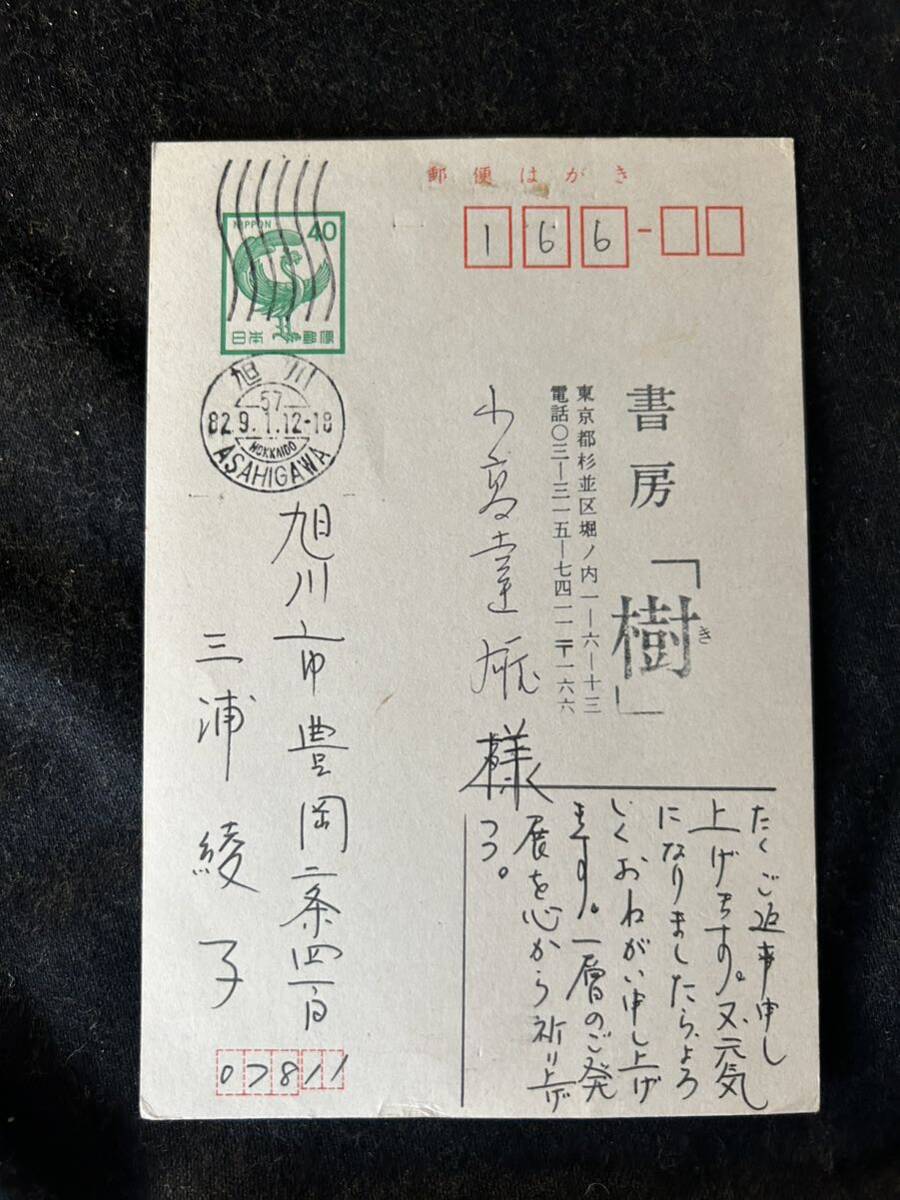 郵便はがき
166-
NIPPON
40
日本郵便
旭川
57
82.9.1.12-18
HOKKAIDO
ASAHIGAWA
書房
「樹」
き
東京都杉並区堀ノ内一ー六ー十三
電話〇三ー三一五ー七四一一〒一六六
様
旭川市豊岡二条四
三浦綾子
07811
たくご返事申し
上げます。又、元気
になりましたら、よろ
しくおねがい申し上げ
ます。一層のご発
展を心から祈り上げ
つつ。